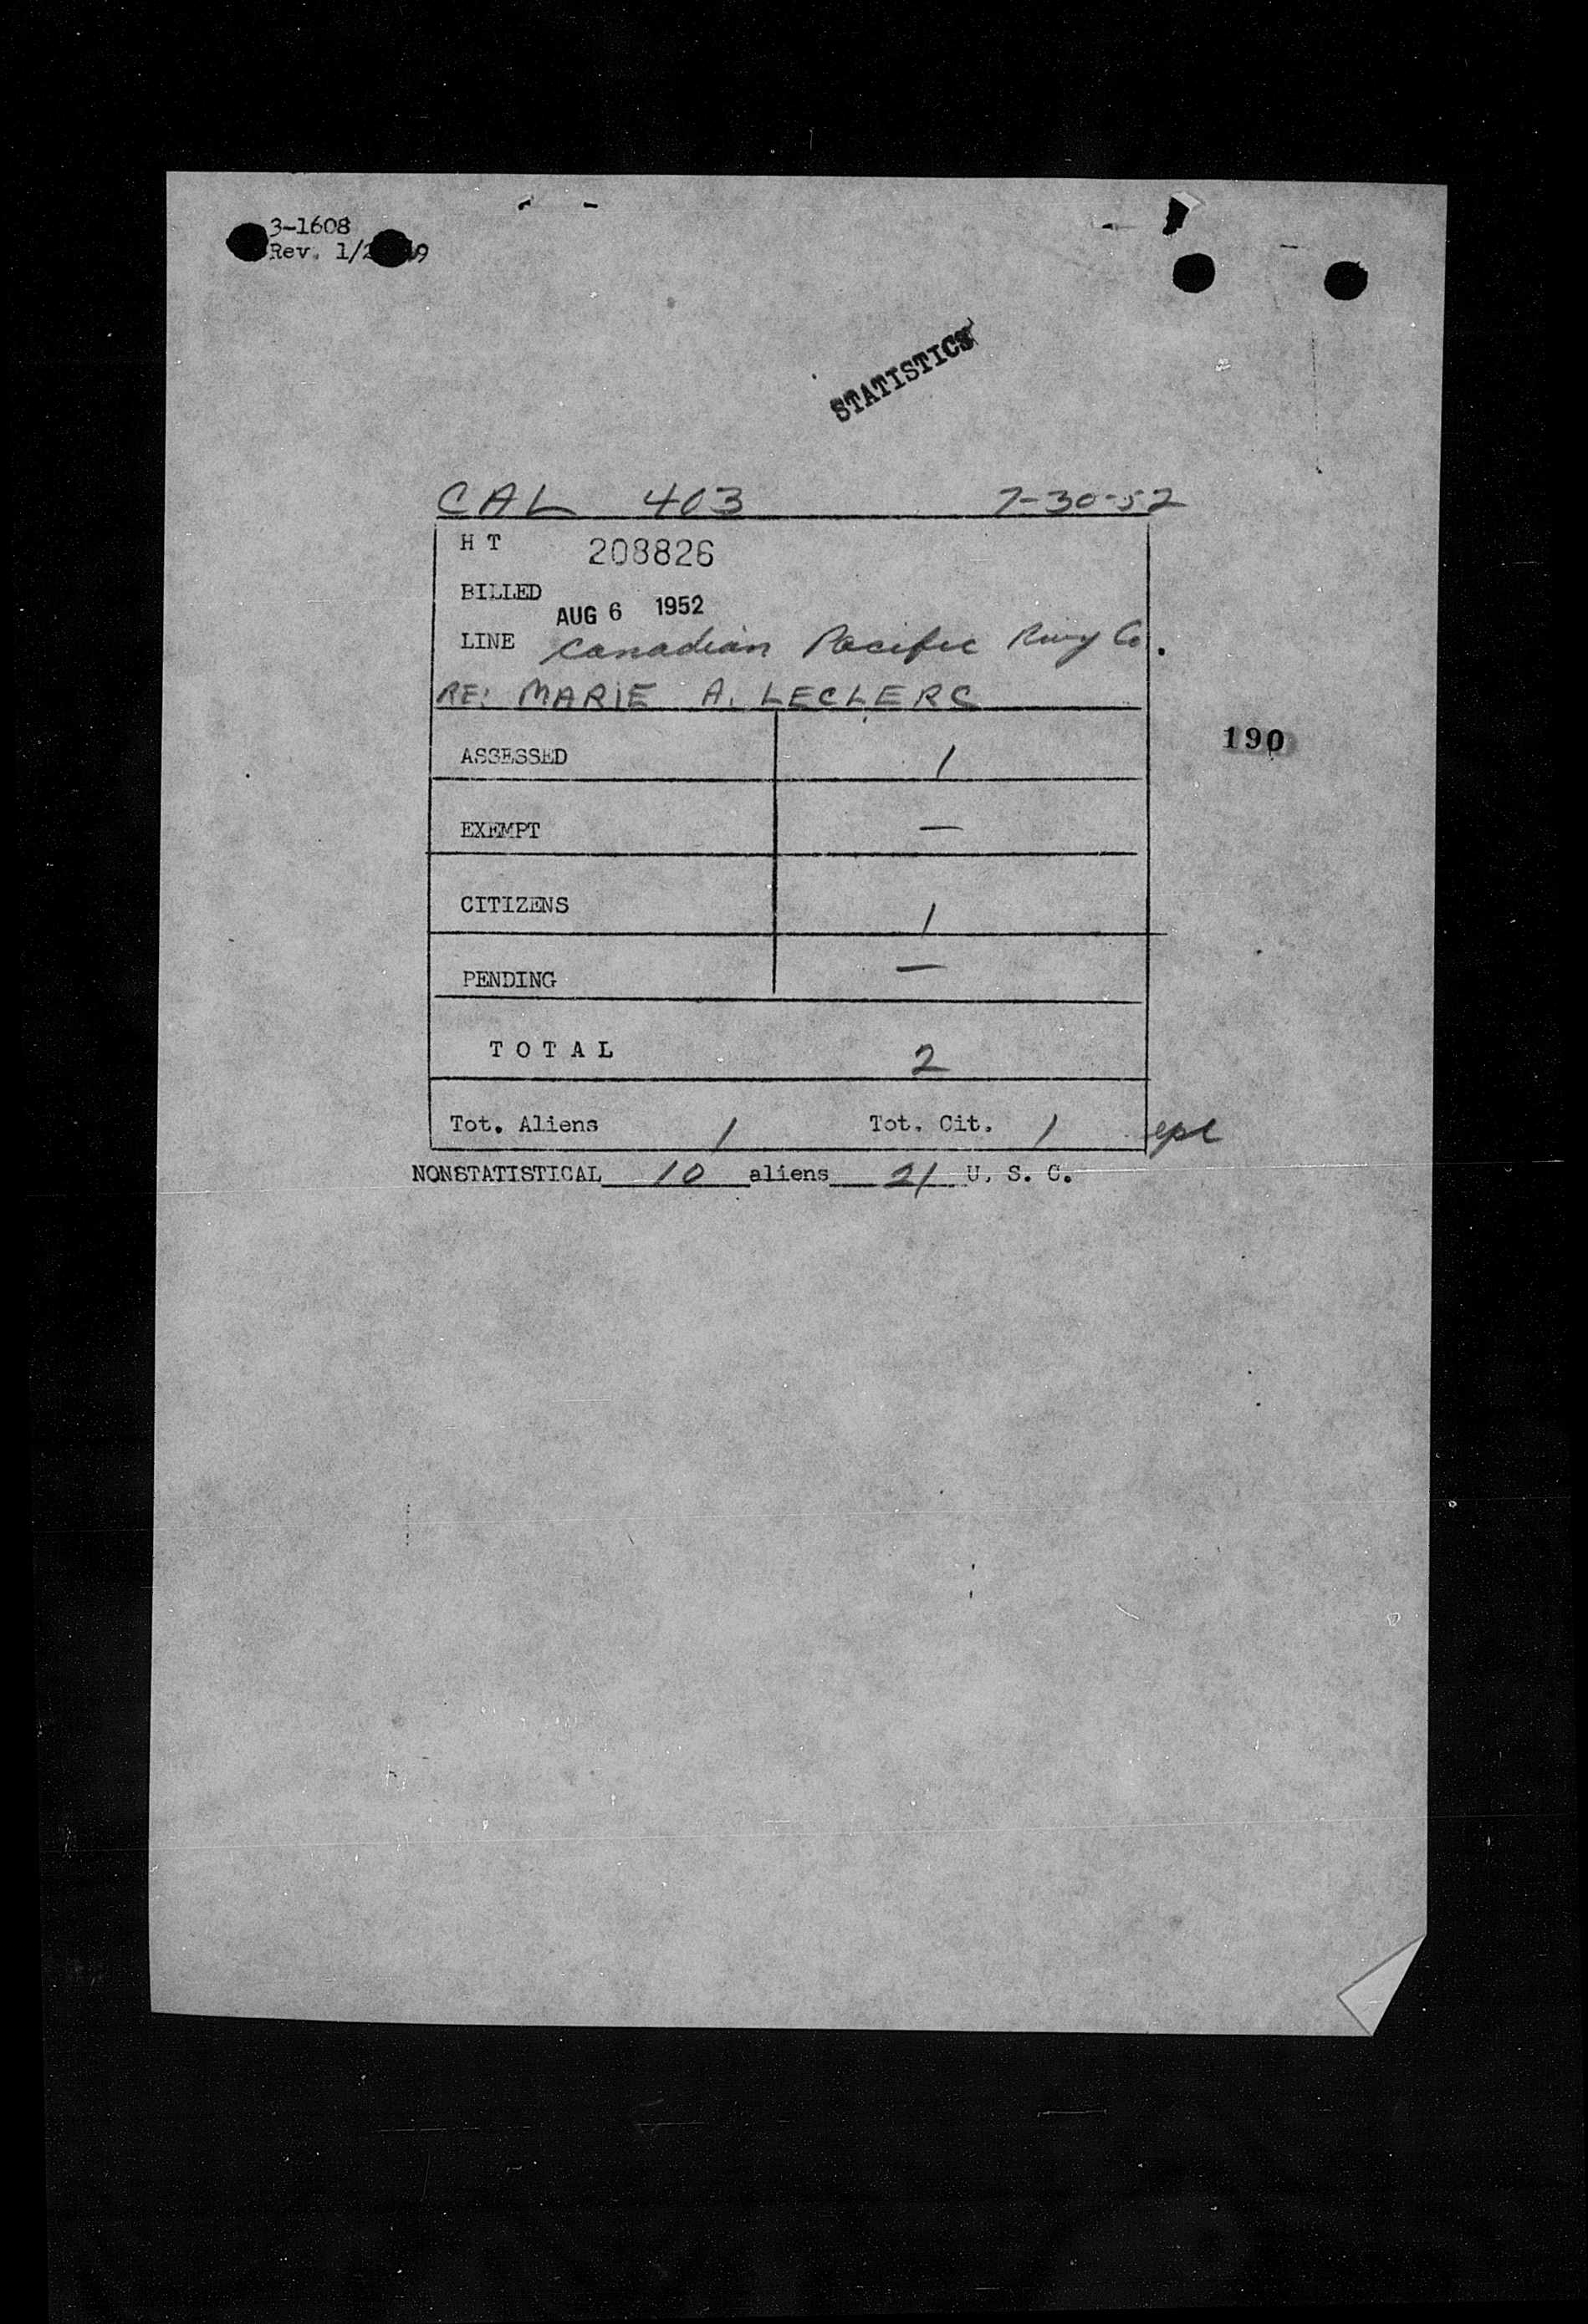 3-1608
Rev. 1/2 49
STATISTICS
CAL 403 7-30-52
H T 208826
BILLED
AUG 6 1952
LINE Canadian Pacific Rwy Co.
RE: MARIE A. LECLERC
190
ASSESSED 1
EXEMPT —
CITIZENS 1
PENDING —
T O T A L 2
Tot. Aliens 1 Tot. Cit. 1
NONSTATISTICAL 10 aliens 21 U. S. C.